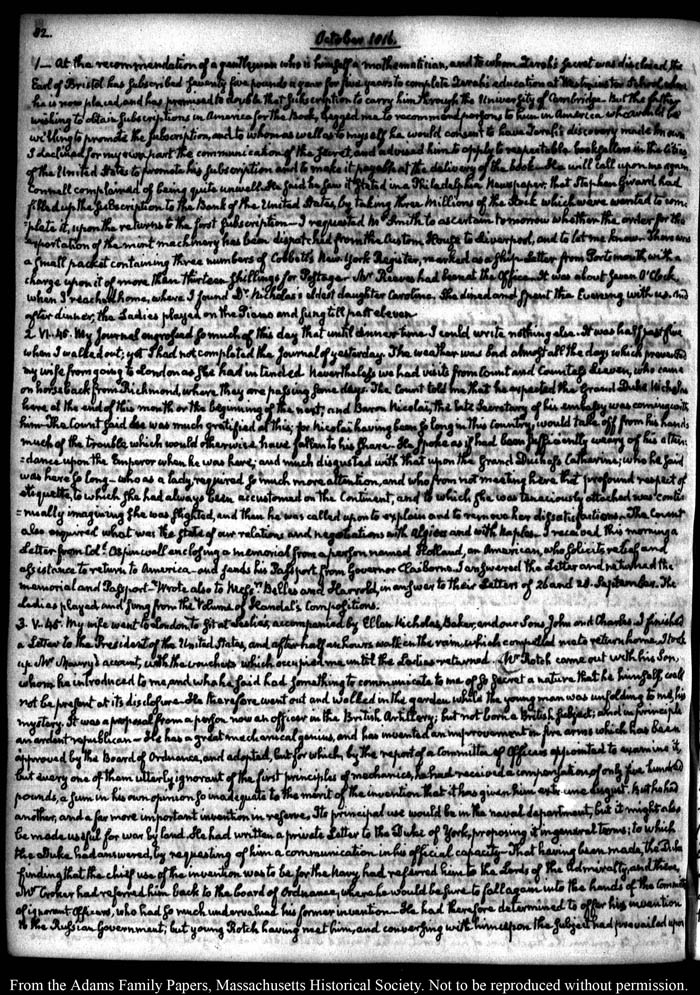 82.
October 1816.
1— At the recommendation of a gentleman who is himself a mathematician, and to whom Zerah's secret was disclosed the
Earl of Bristol has subscribed seventy five pounds a year for five years to complete Zerah's education at Westminster School where
he is now placed, and has promised to double that subscription to carry him through the University of Cambridge. But the father
wishing to obtain subscriptions in America for the Book, begged me to recommend persons to him in America who would be
willing to promote the subscription, and to whom as well as to myself he would consent to have Zerah's discovery made known
I declined for my own part the communication of the secret, and advised him to apply to respectable booksellers in the Cities
of the United States to promote his subscription and to make it payable at the delivery of the book. He will call upon me again.
Connall complained of being quite unwell. He said he saw it stated in a Philadelphia Newspaper, that Stephen Girard had
filled up the subscription to the Bank of the United States, by taking three Millions of the Stock which were wanted to com-
=plete it, upon the returns to the first subscription— I requested Mr Smith to ascertain tomorrow whether the order for the
exportation of the mint machinery has been dispatched from the Custom House to Liverpool, and to let me know. There was
a small packet containing three numbers of Cobbett's New York Register, marked as a Ship-Letter from Portsmouth, with a
charge upon it of more than thirteen shillings for Postage. Mr Reeves had been at the Office. It was about seven O'Clock
when I reached home, where I found Dr Nicholas's eldest daughter Caroline. She dined and spent the Evening with us. And
after dinner, the Ladies played on the Piano and sung till past eleven
2. VI. 45. My Journal engrossed so much of this day that until dinner-time I could write nothing else. It was half past five
when I walked out; yet I had not completed the Journal of yesterday. The weather was bad almost all the day; which prevented
my wife from going to London as she had intended. Nevertheless we had visits from Count and Countess Lieven, who came
on horseback from Richmond, where they are passing some days. The Count told me that he expected the Grand Duke Nicholas
here at the end of this month or the beginning of the next; and Baron Nicolai, the late Secretary of his embassy was coming with
him. The Count said he was much gratified at this; for Nicolai having been so long in this Country, would take off from his hands
much of the trouble which would otherwise have fallen to his share. He spoke as if had been sufficiently weary of his atten-
=dance upon the Emperor when he was here; and much disgusted with that upon the Grand Duchess Catharine; who he said
was here so long— who as a lady required so much more attention, and who from not meeting here that profound respect of
etiquette, to which she had always been accustomed on the Continent, and to which she was tenaciously attached was conti-
=nually imagining she was slighted, and then he was called upon to explain and to remove her dissatisfactions. The Count
also enquired what was the state of our relations and negotiations with Algiers and with Naples. I received this morning a
Letter from Coll. Aspinwall enclosing a memorial from a person named Holland, an American, who solicits relief and
assistance to return to America— and sends his Passport from Governor Claiborne. I answered the letter and returned the
memorial and Passport— Wrote also to Messrs. Belles and Harrold, in answer to their Letters of 26 and 28. September. The
Ladies played and sung from the Volume of Handel's compositions.
3. V. 45. My wife went to London to sit at Leslie's, accompanied by Ellen Nicholas, Baker, and our Sons John and Charles. I finished
a Letter to the President of the United States, and after half an hours walk in the rain, which compelled me to return home, I took
up Mr Maury's account, with the vouchers which occupied me until the Ladies returned. Mr Rotch came out with his son,
whom he introduced to me, and who he said had something to communicate to me of so secret a nature that he himself could
not be present at its disclosure. He therefore went out and walked in the garden while the young man was unfolding to me, his
mystery. It was a proposal from a person now an officer in the British Artillery; but not born a British Subject; and in principle
an ardent republican— He has a great mechanical genius, and has invented an improvement in fire arms which has been
approved by the Board of Ordnance, and adopted, but for which, by the report of a Committee of Officers appointed to examine it,
but every one of them utterly ignorant of the first principles of mechanics, he had received a compensation of only five hundred
pounds, a sum in his own opinion so inadequate to the merit of the invention that it has given him extreme disgust. But he had
another, and a far more important invention in reserve. Its principal use would be in the naval department, but it might also
be made useful for war by land. He had written a private Letter to the Duke of York, proposing it in general terms; to which
the Duke had answered, by requesting of him a communication in his official capacity— That having been made, the Duke
finding that the chief use of the invention was to be for the Navy, had referred him to the Lords of the Admiralty, and there,
Mr Croker had referred him back to the board of Ordnance, where he would be sure to fall again into the hands of the Committee
of ignorant Officers, who had so much undervalued his former invention— He had therefore determined to offer his invention
to the Russian Government; but young Rotch having met him, and conversing with him upon the subject had prevailed upon
From the Adams Family Papers, Massachusetts Historical Society. Not to be reproduced without permission.